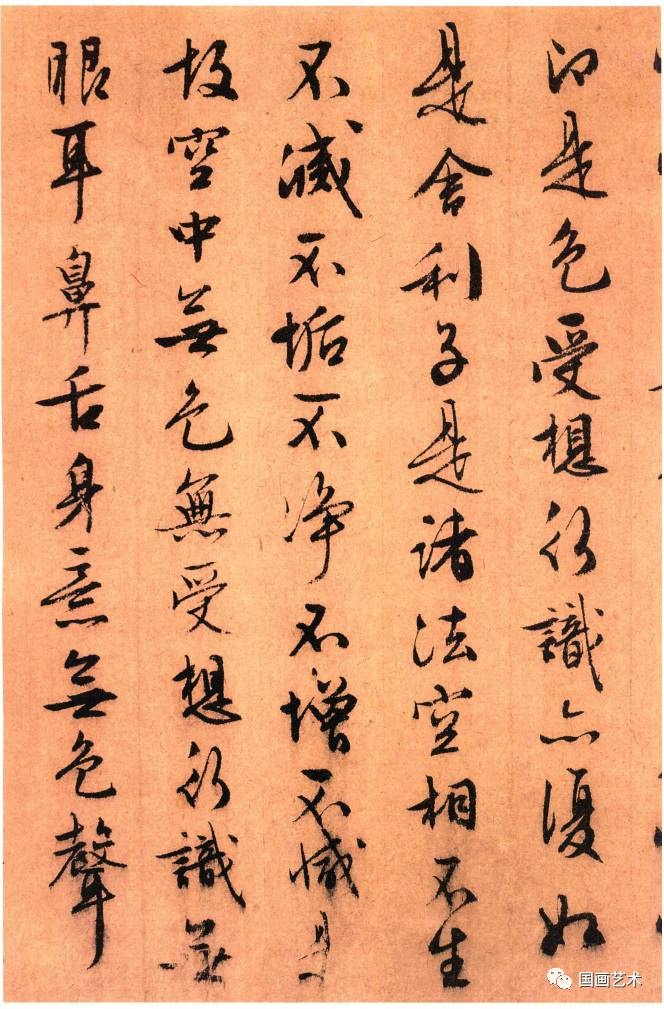 即是色受想行識亦復如
是舍利子是諸法空相不生
不滅不垢不净不增不減是
故空中無色無受想行識無
眼耳鼻舌身意無色聲
国画艺术